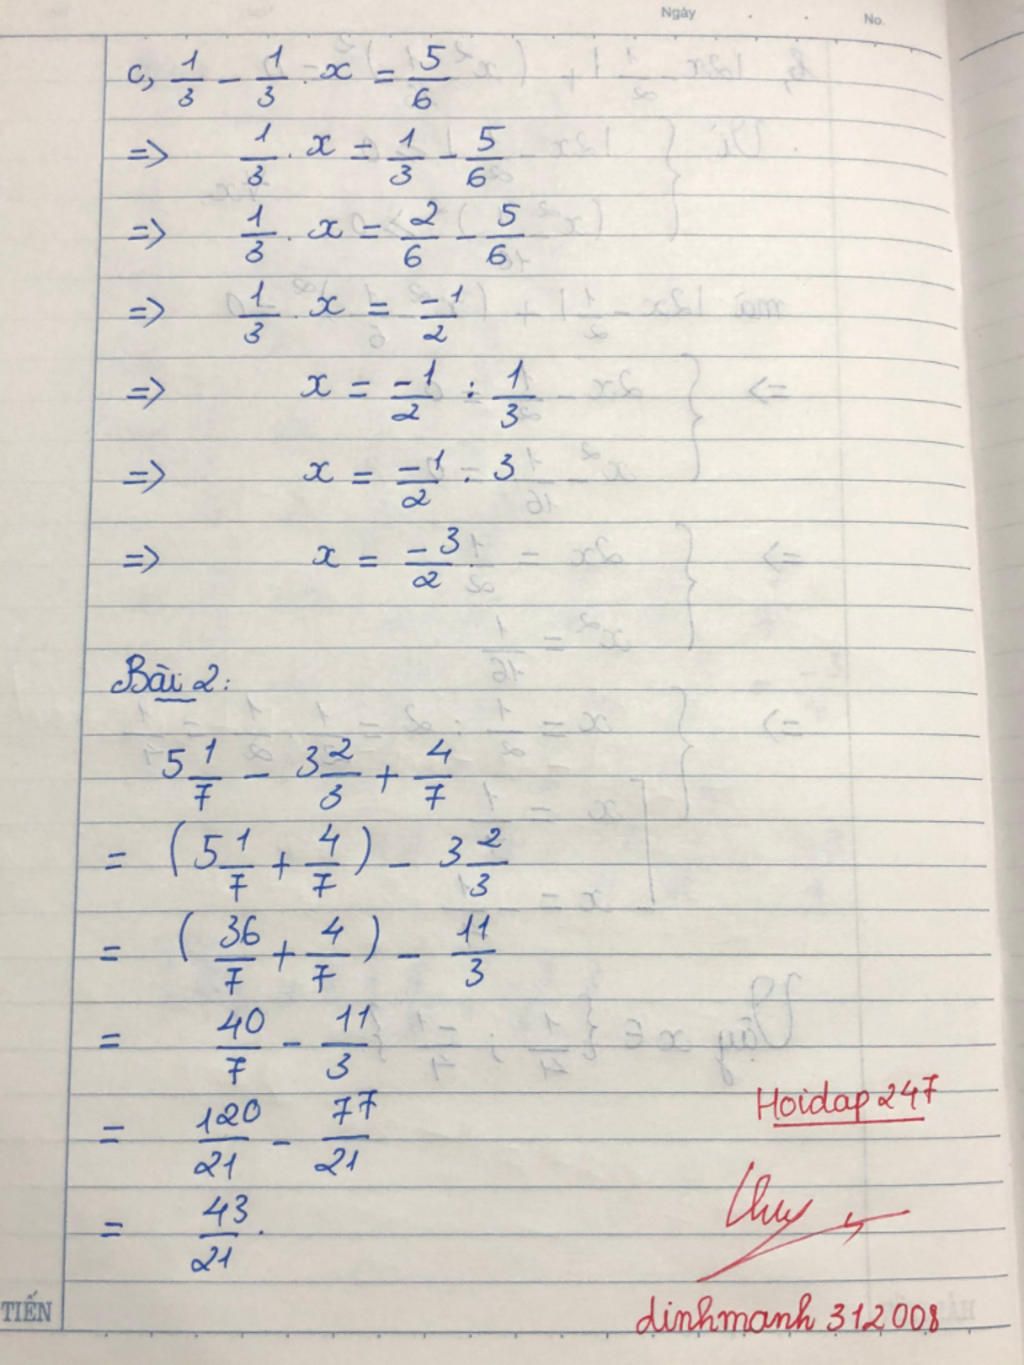 Ngày . . No.
c, 1/3 - 1/3 . x = 5/6
=> 1/3 . x = 1/3 - 5/6
=> 1/3 . x = 2/6 - 5/6
=> 1/3 . x = -1/2
=> x = -1/2 : 1/3
=> x = -1/2 . 3
=> x = -3/2
Bài 2:
5 1/7 - 3 2/3 + 4/7
= (5 1/7 + 4/7) - 3 2/3
= (36/7 + 4/7) - 11/3
= 40/7 - 11/3
= 120/21 - 77/21
= 43/21.
Hoidap247
TIẾN
dinhmanh312008